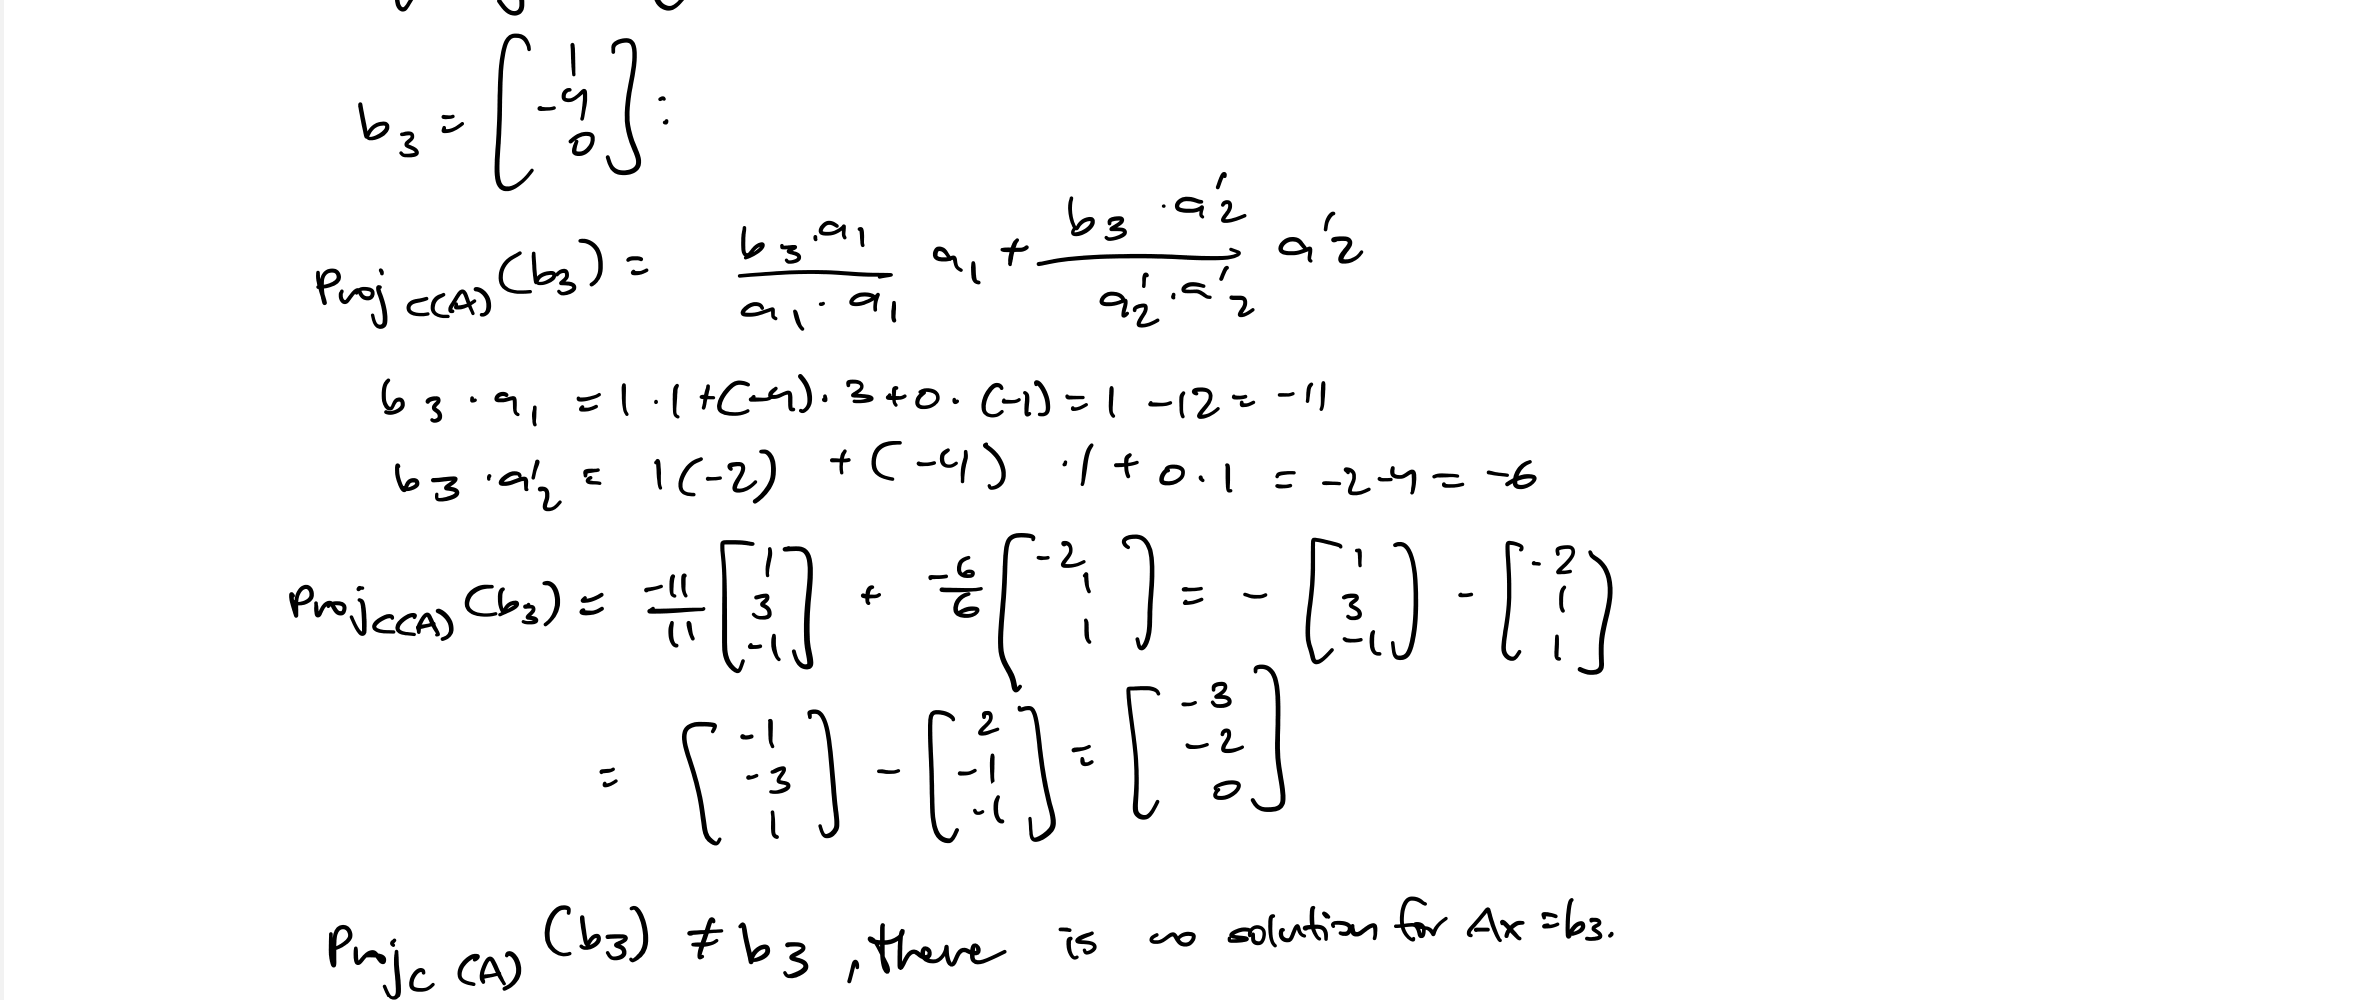 b₃ = [1; -4; 0] :
Proj C(A) (b₃) = (b₃·a₁)/(a₁·a₁) a₁ + (b₃·a₂')/(a₂'·a₂') a₂'
b₃·a₁ = 1·1+(-4)·3+0·(-1) = 1-12 = -11
b₃·a₂' = 1(-2) + (-4)·1 + 0·1 = -2-4 = -6
Proj C(A) (b₃) = -11/11 [1; 3; -1] + -6/6 [-2; 1; 1] = - [1; 3; -1] - [-2; 1; 1]
= [-1; -3; 1] - [2; -1; -1] = [-3; -2; 0]
Proj C(A) (b₃) ≠ b₃, there is no solution for Ax = b₃.